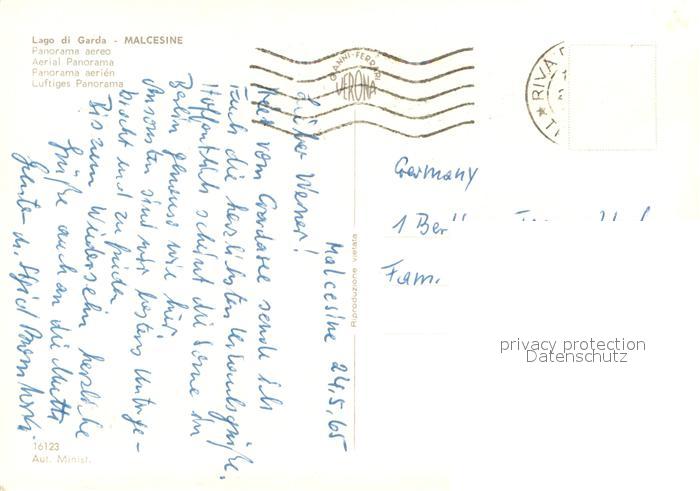 Lago di Garda - MALCESINE
Panorama aereo
Aerial Panorama
Panorama aerién
Luftiges Panorama
GIANNI-FERRARI
VERONA
RIVA
Malcesine 24.5.65
Lieber Werner!
vom Gardasee sende ich
Euch die herzlichsten Urlaubsgrüße.
Hoffentlich scheint die Sonne in
Berlin genauso wie hier.
Ansonsten sind wir bestens unterge-
bracht und zufrieden
Bis zum Wiedersehn herzliche
Grüße auch an die Mutti
Riproduzione vietata
Germany
1
Fam.
privacy protection
Datenschutz
16123
Aut. Minist.